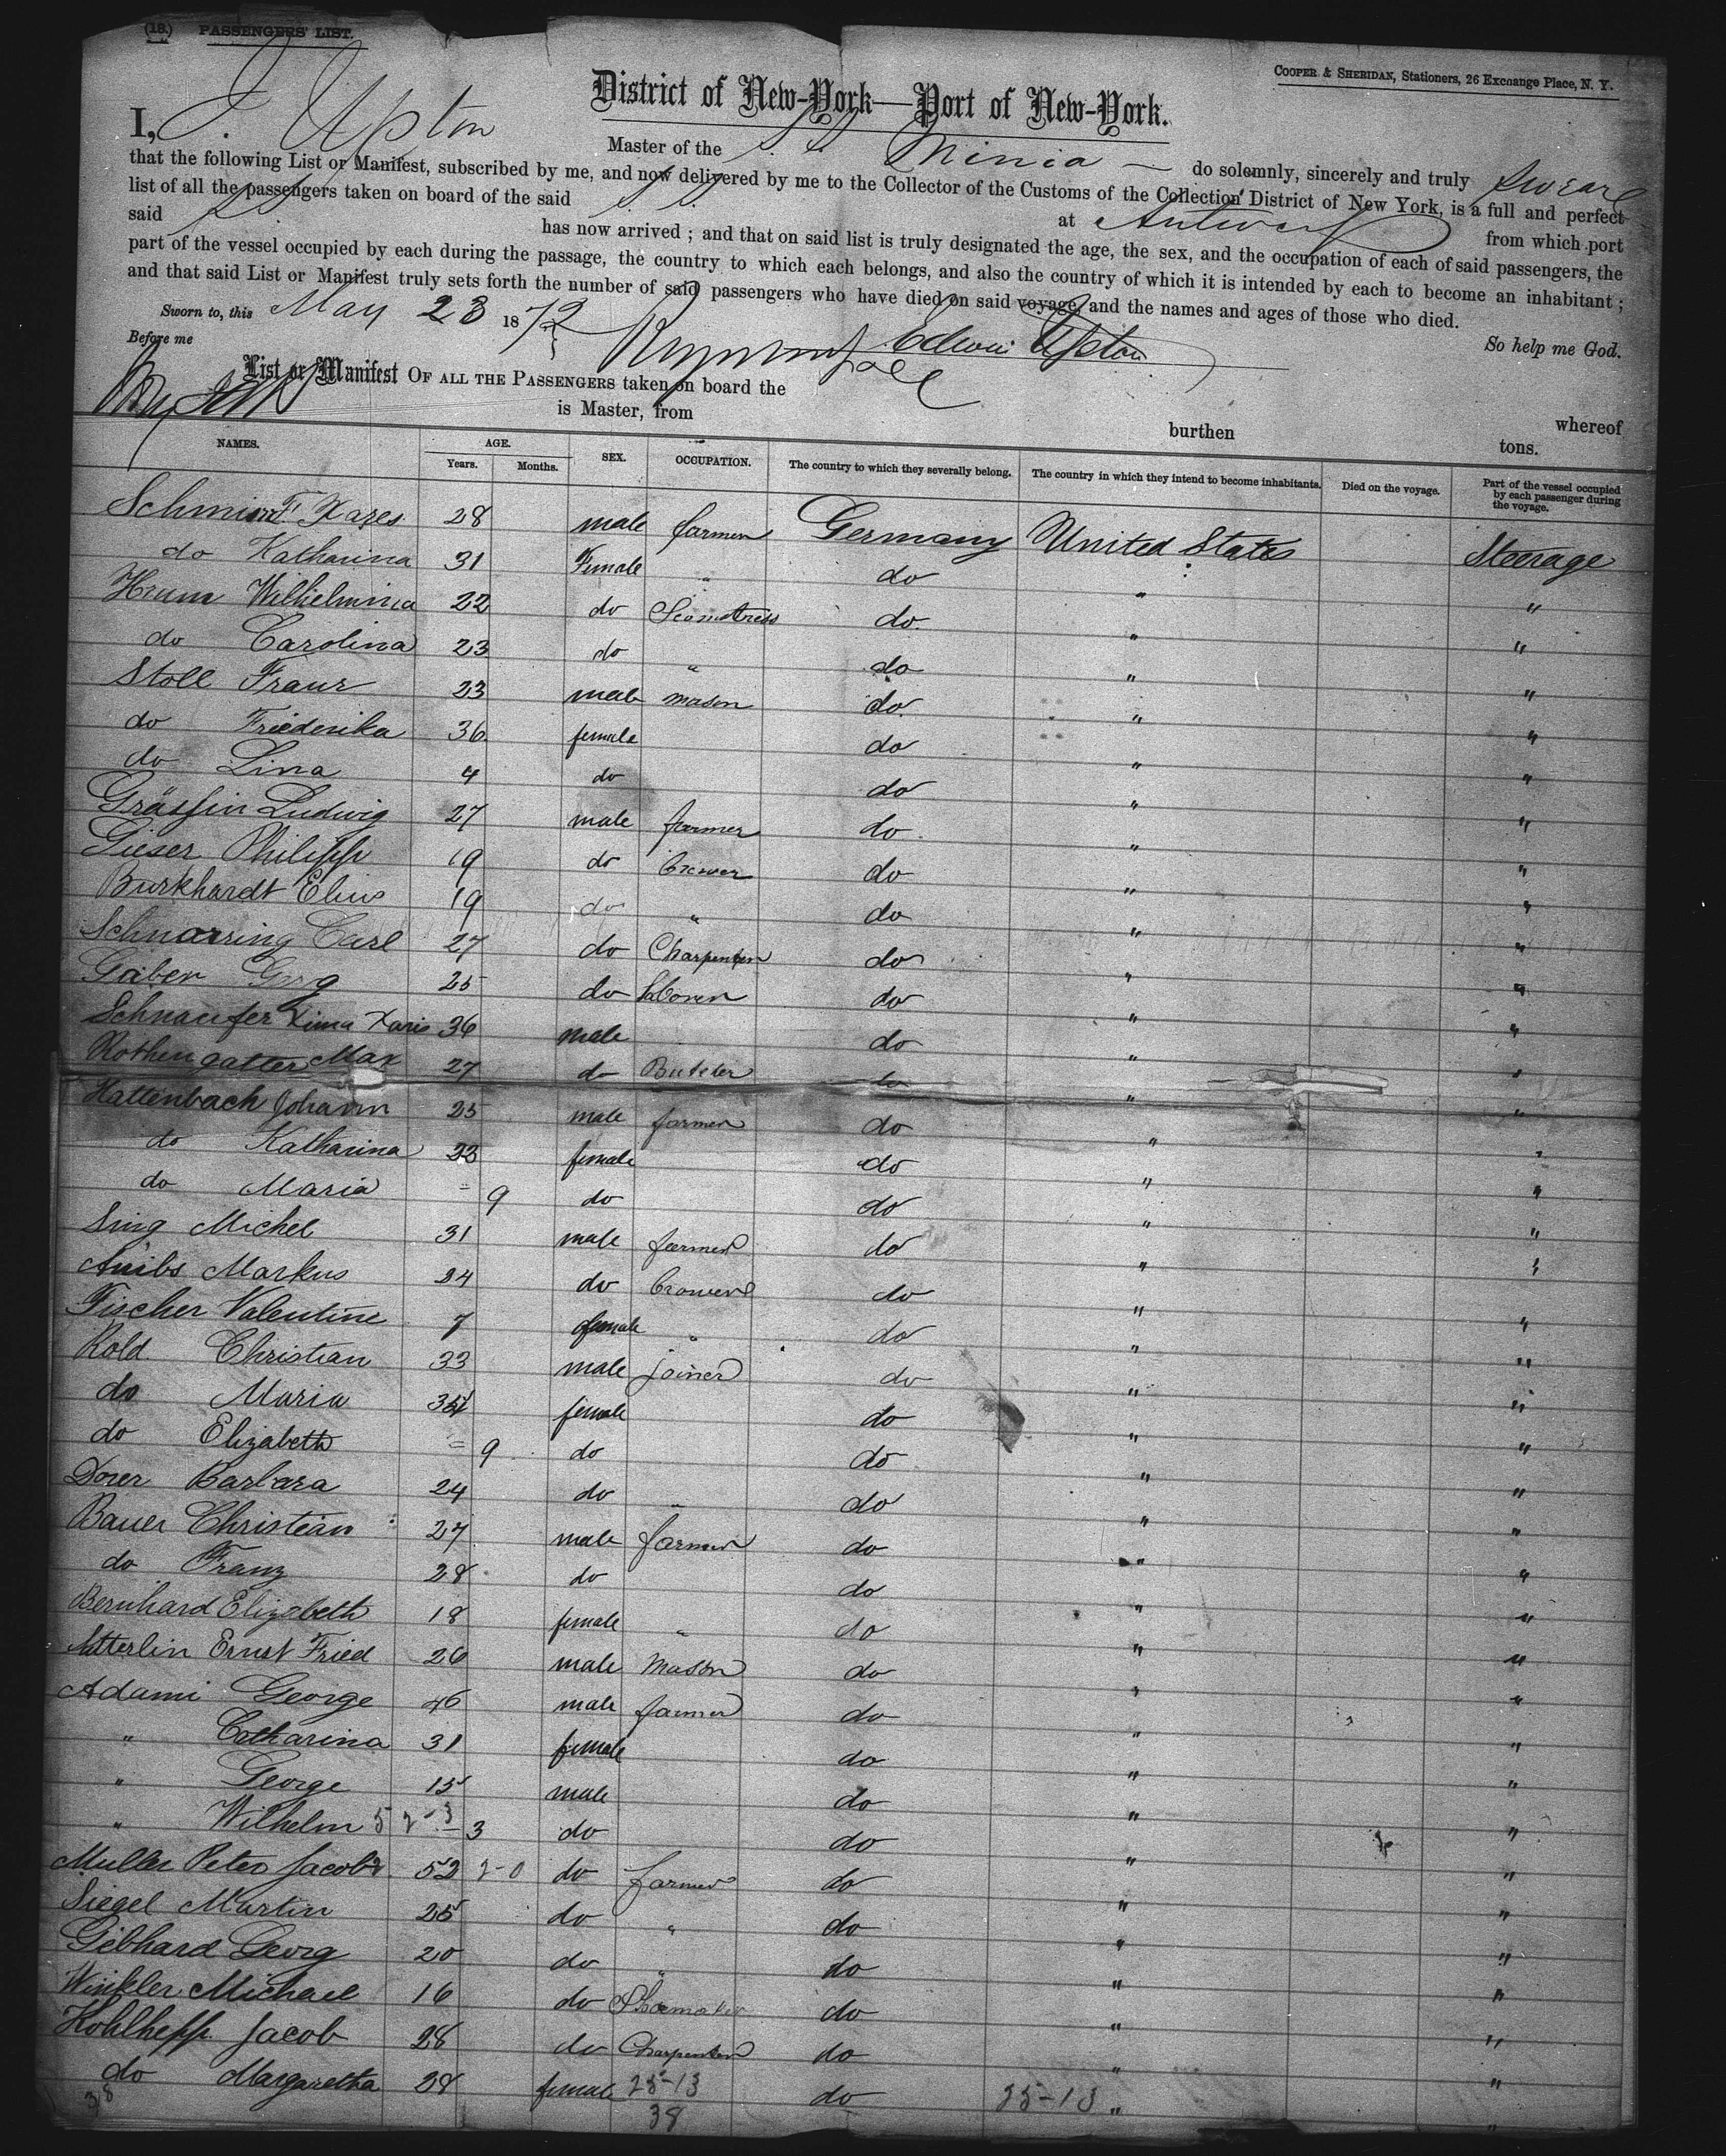 (18.) PASSENGERS' LIST.
COOPER & SHERIDAN, Stationers, 26 Exchange Place, N. Y.
District of New-York—Port of New-York.
I, J. Upton Master of the S. S. Minia do solemnly, sincerely and truly swear
that the following List or Manifest, subscribed by me, and now delivered by me to the Collector of the Customs of the Collection District of New York, is a full and perfect
list of all the passengers taken on board of the said S. S. at Antwerp from which port
said S.S. has now arrived ; and that on said list is truly designated the age, the sex, and the occupation of each of said passengers, the
part of the vessel occupied by each during the passage, the country to which each belongs, and also the country of which it is intended by each to become an inhabitant ;
and that said List or Manifest truly sets forth the number of said passengers who have died on said voyage, and the names and ages of those who died.
Sworn to, this May 23 1872 Edwin Upton So help me God.
Before me
List or Manifest OF ALL THE PASSENGERS taken on board the whereof
is Master, from burthen tons.
NAMES. AGE. Years. Months. SEX. OCCUPATION. The country to which they severally belong. The country in which they intend to become inhabitants. Died on the voyage. Part of the vessel occupied by each passenger during the voyage.
28 male farmer Germany United States Steerage
do Katharina 31 Female " do " "
Wilhelmina 22 do Seamstress do " "
do Carolina 23 do " do " "
Stoll Franz 23 male mason do " "
do Friederika 36 female do " "
do Lina 4 do do " "
Grässlin Ludwig 27 male farmer do " "
Gieser Philipp 19 do brewer do " "
Burkhardt Elius 19 do " do " "
Schnarring Carl 27 do Charpenter do " "
Gaber Georg 25 do Laborer do " "
Schnaufer 36 male do " "
Rothengatter Max 27 do Butcher do " "
Hattenbach Johann 25 male farmer do " "
do Katharina 23 female do " "
do Maria = 9 do do " "
Sing Michel 31 male farmer do " "
Markus 24 do brower do " "
Fischer Valentine 7 female " do " "
Kold Christian 33 male joiner do " "
do Maria 34 female do " "
do Elizabeth = 9 do do " "
Dorer Barbara 24 do " do " "
Bauer Christian 27 male farmer do " "
do Franz 28 do do " "
Bernhard Elizabeth 18 female " do " "
Sütterlin Ernst Fried 26 male Mason do " "
Adami George 46 male farmer do " "
" Catharina 31 female do " "
" George 15 male do " "
" Wilhelm 3 do do " "
Muller Peter Jacob 52 2-0 do farmer do " "
Siegel Martin 25 do " do " "
Gebhard Georg 20 do " do " "
Winkler Michael 16 do Shoemaker do " "
Kohlhepp Jacob 28 do Charpenter do " "
do Margaretha 28 female 25-13 do 25-13 " "
38 38